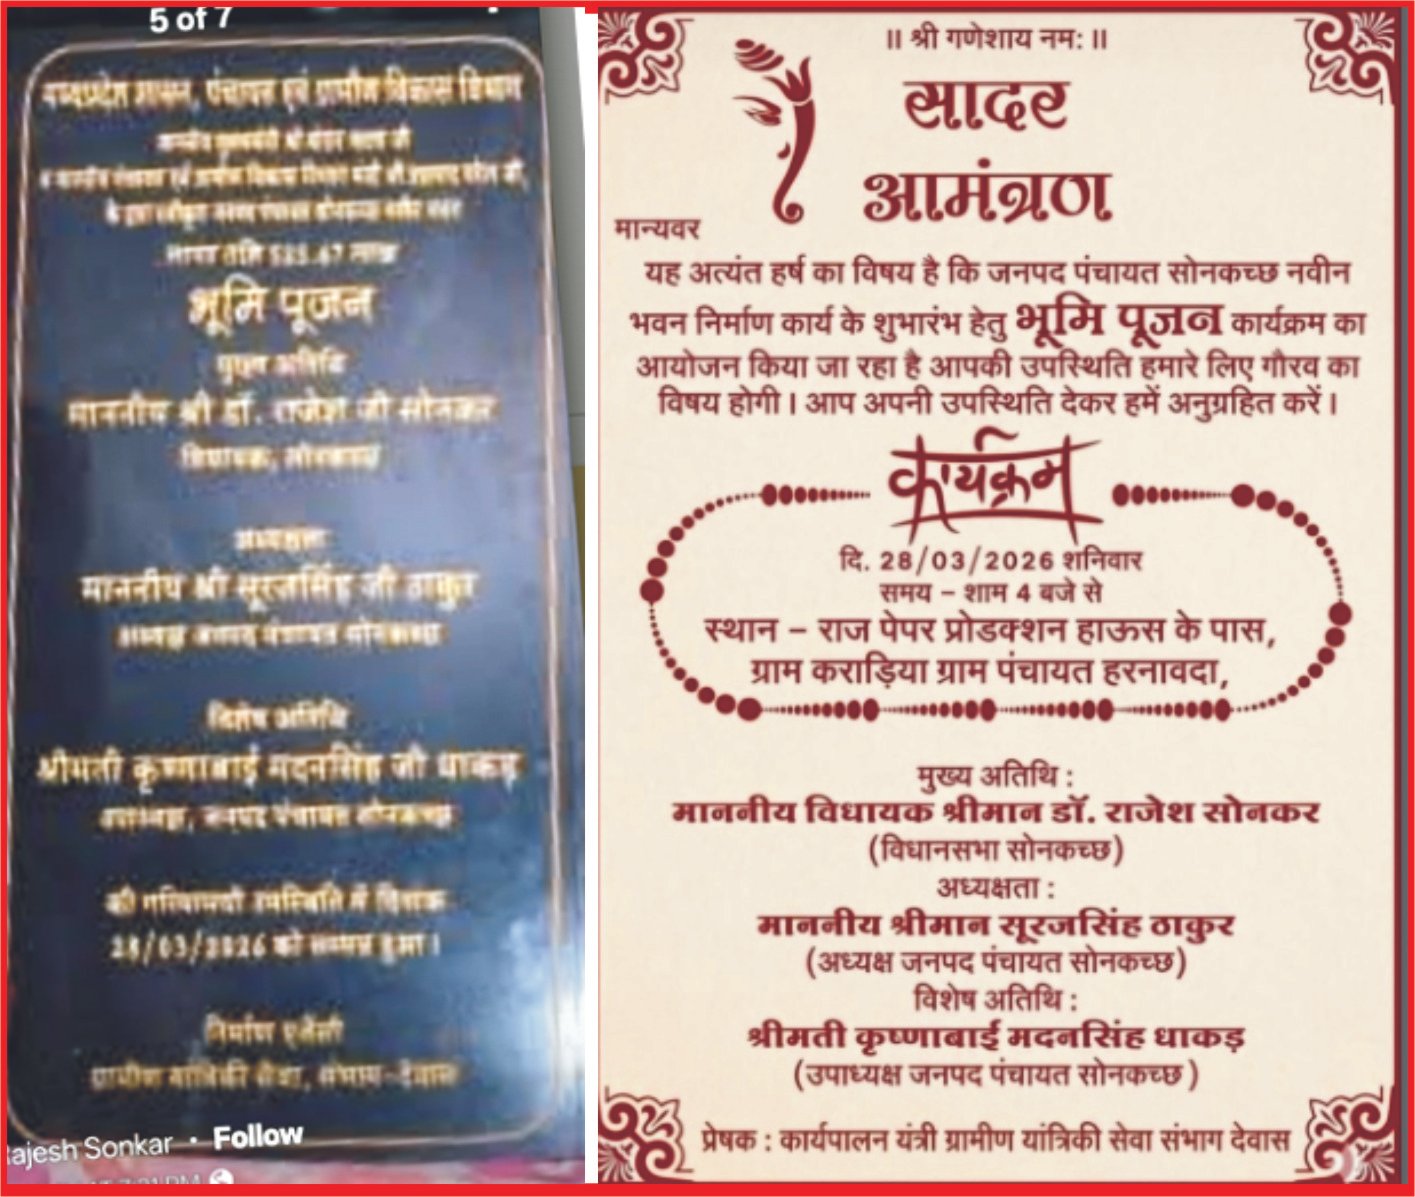 5 of 7
मध्यप्रदेश शासन, पंचायत एवं ग्रामीण विकास विभाग
लागत राशि 525.47 लाख
भूमि पूजन
मुख्य अतिथि
माननीय श्री डॉ. राजेश जी सोनकर
विधायक, सोनकच्छ
अध्यक्षता
माननीय श्री सूरजसिंह जी ठाकुर
अध्यक्ष जनपद पंचायत सोनकच्छ
विशेष अतिथि
श्रीमती कृष्णाबाई मदनसिंह जी धाकड़
उपाध्यक्ष, जनपद पंचायत सोनकच्छ
की गरिमामयी उपस्थिति में दिनांक
28/03/2026 को सम्पन्न हुआ।
निर्माण एजेंसी
ग्रामीण यांत्रिकी सेवा, संभाग-देवास
Rajesh Sonkar • Follow
॥ श्री गणेशाय नमः ॥
सादर
आमंत्रण
मान्यवर
यह अत्यंत हर्ष का विषय है कि जनपद पंचायत सोनकच्छ नवीन
भवन निर्माण कार्य के शुभारंभ हेतु भूमि पूजन कार्यक्रम का
आयोजन किया जा रहा है आपकी उपस्थिति हमारे लिए गौरव का
विषय होगी। आप अपनी उपस्थिति देकर हमें अनुग्रहित करें।
कार्यक्रम
दि. 28/03/2026 शनिवार
समय – शाम 4 बजे से
स्थान – राज पेपर प्रोडक्शन हाऊस के पास,
ग्राम कराड़िया ग्राम पंचायत हरनावदा,
मुख्य अतिथि :
माननीय विधायक श्रीमान डॉ. राजेश सोनकर
(विधानसभा सोनकच्छ)
अध्यक्षता :
माननीय श्रीमान सूरजसिंह ठाकुर
(अध्यक्ष जनपद पंचायत सोनकच्छ)
विशेष अतिथि :
श्रीमती कृष्णाबाई मदनसिंह धाकड़
(उपाध्यक्ष जनपद पंचायत सोनकच्छ)
प्रेषक : कार्यपालन यंत्री ग्रामीण यांत्रिकी सेवा संभाग देवास